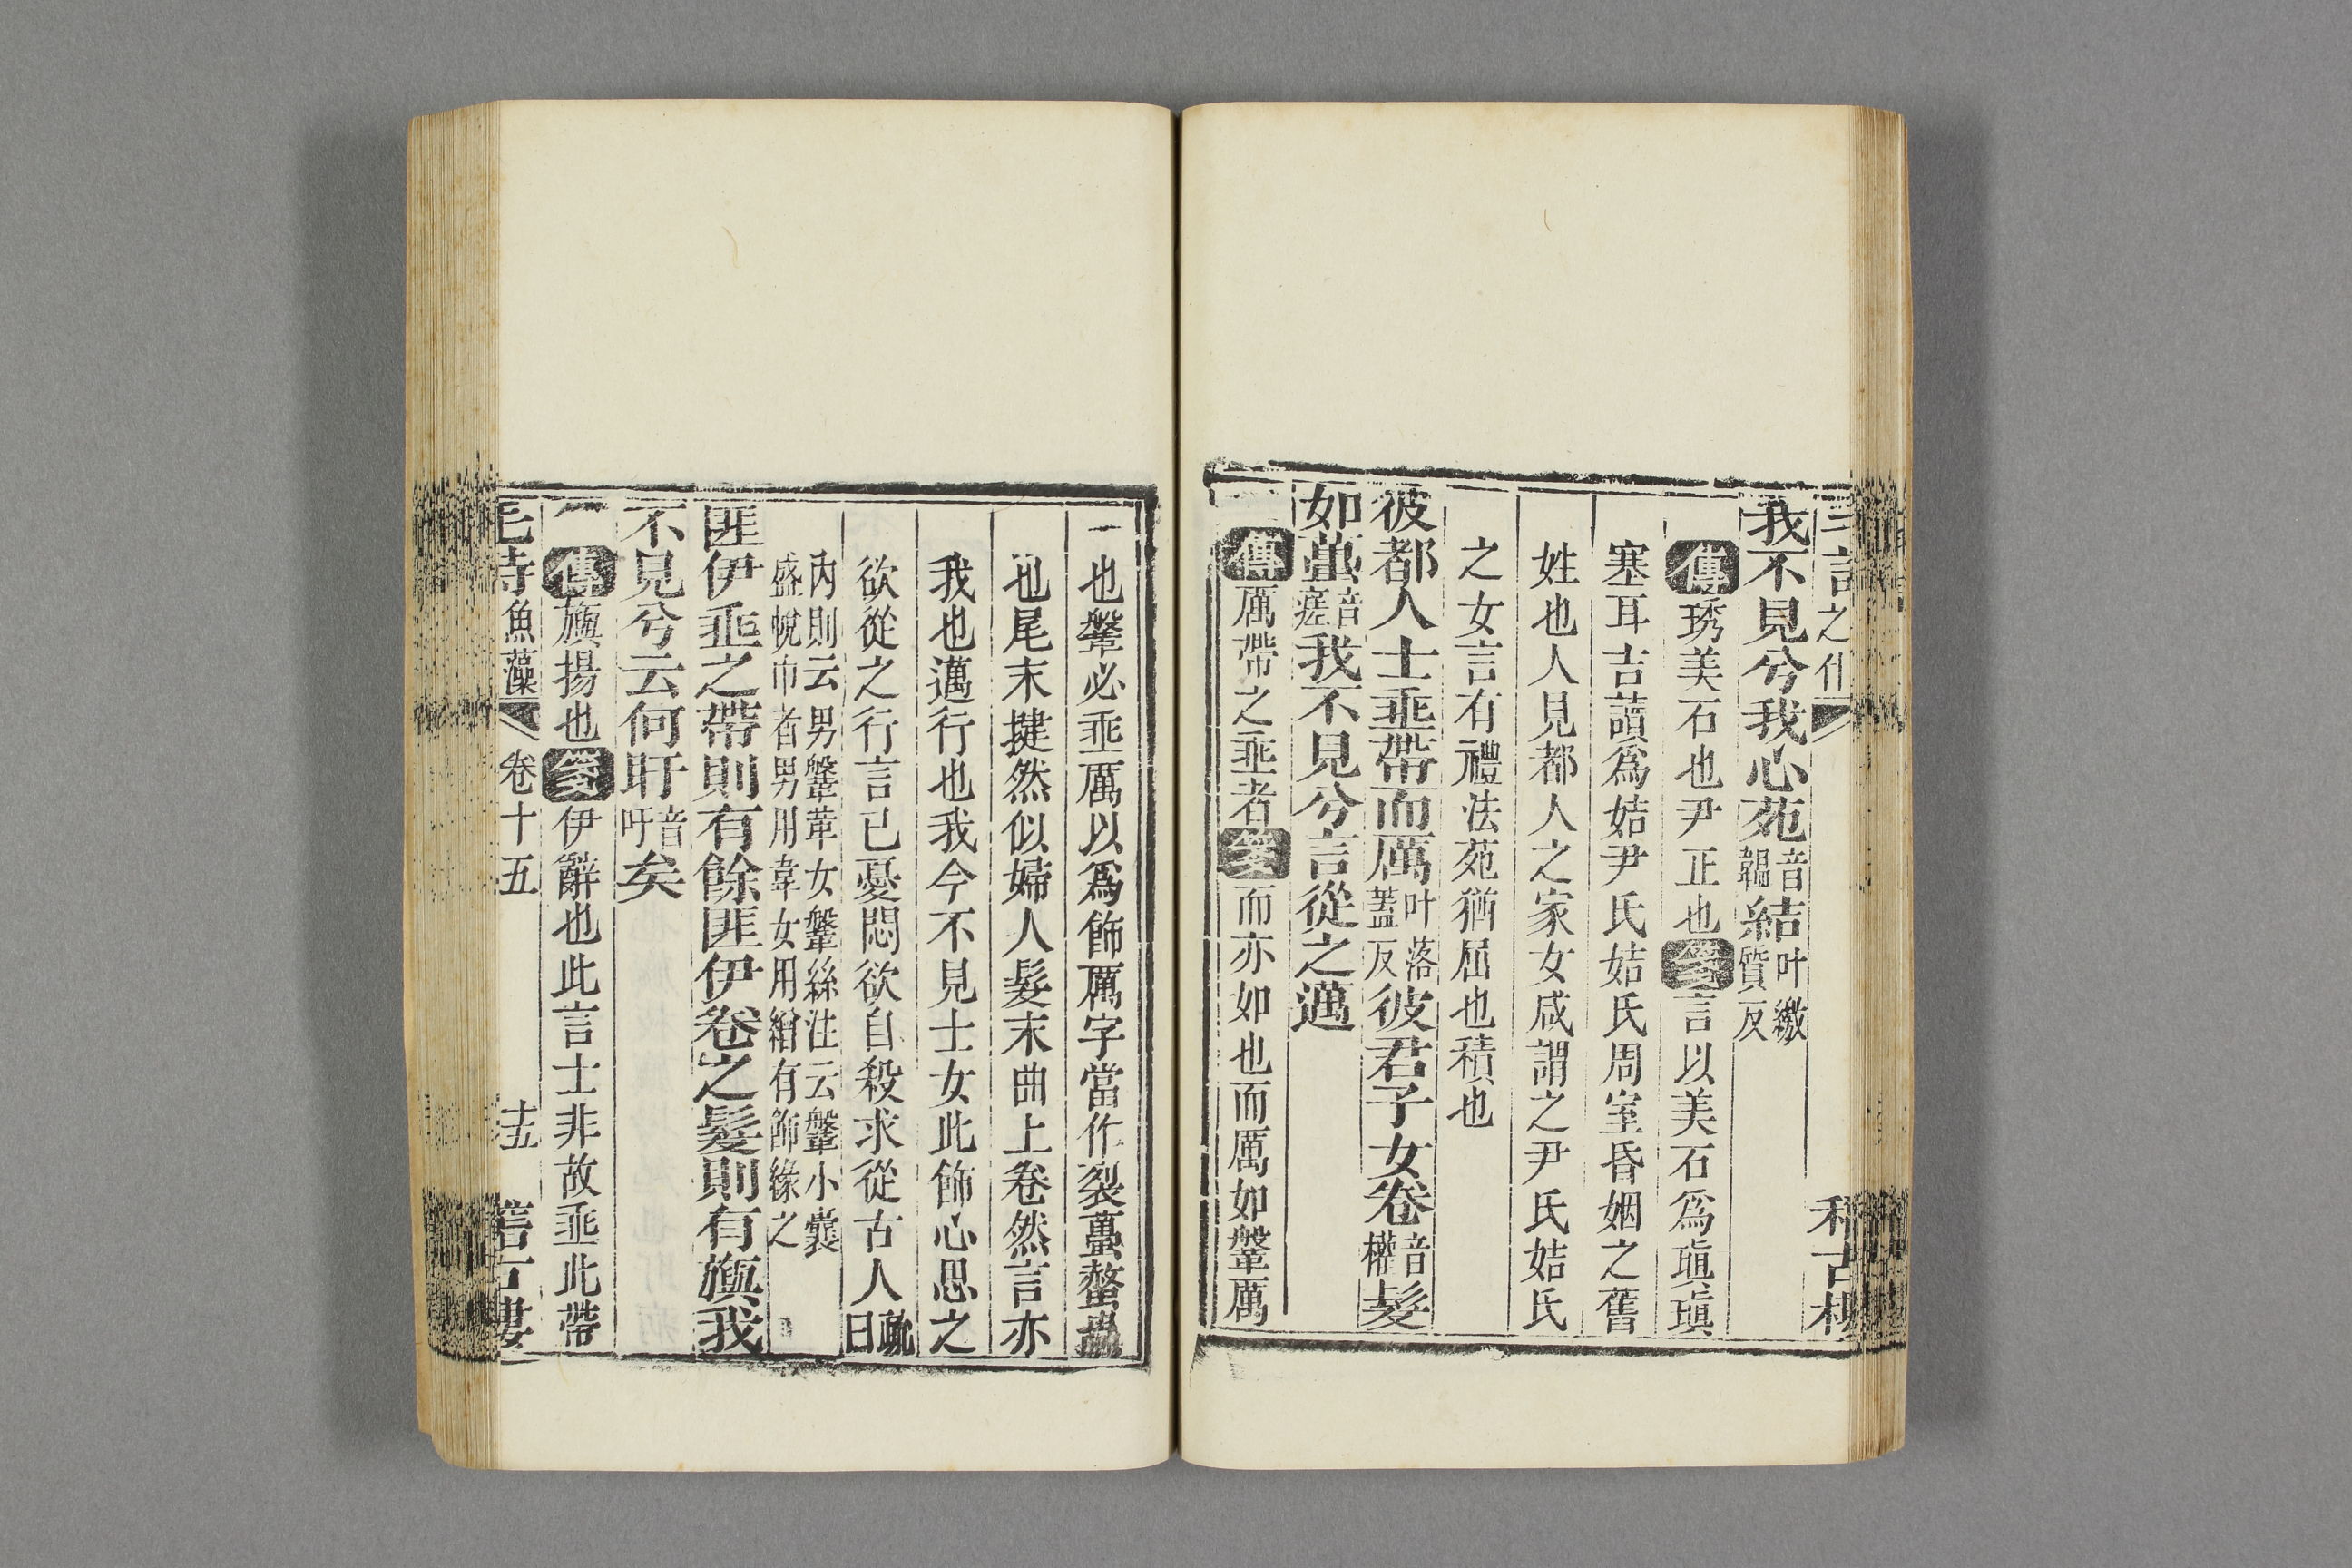 我不見兮我心苑音韞結叶繳質反
傳琇美石也尹正也箋言以美石爲瑱瑱
塞耳吉讀爲姞尹氏姞氏周室昏姻之舊
姓也人見都人之家女咸謂之尹氏姞氏
之女言有禮法苑猶屈也積也
彼都人士垂帶而厲叶落蓋反彼君子女卷音權髮
如蠆音瘥我不見兮言從之邁
傳厲帶之垂者箋而亦如也而厲如鞶厲
也鞶必垂厲以爲飾厲字當作裂蠆螫蟲
也尾末揵然似婦人髮末曲上卷然言亦
我也邁行也我今不見士女此飾心思之
欲從之行言已憂悶欲自殺求從古人疏曰
內則云男鞶革女鞶絲注云鞶小囊
盛帨巾者男用韋女用繒有飾緣之
匪伊垂之帶則有餘匪伊卷之髮則有旟我
不見兮云何盱音吁矣
傳旟揚也箋伊辭也此言士非故垂此帶
毛詩魚藻 卷十五 十五